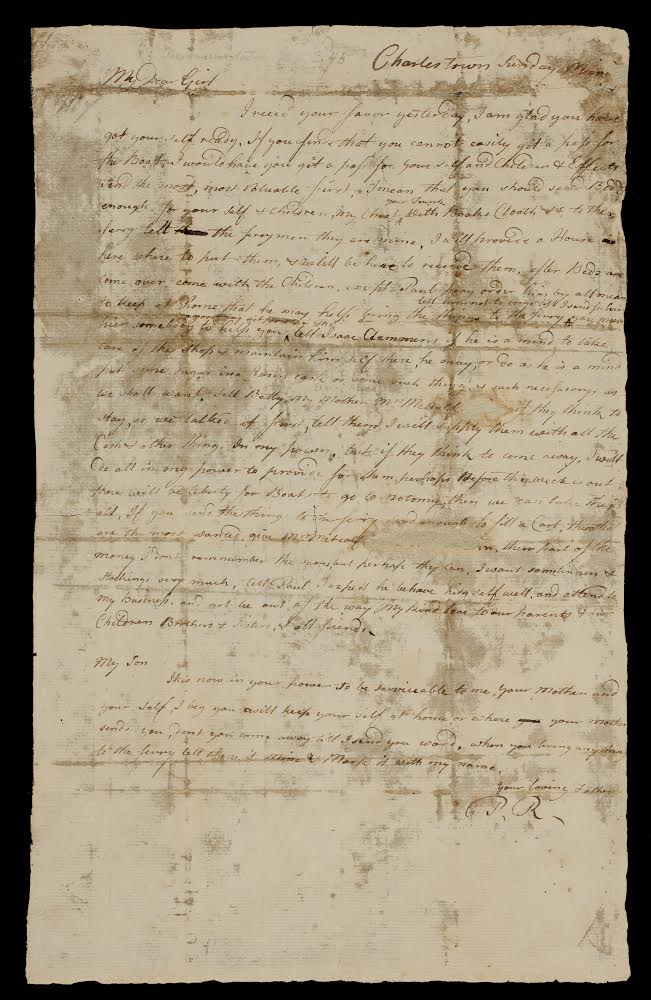 Charlestown Sunday
My Dear Girl
I receid your favor yesterday, I am glad you have
got your self ready, If you find that you cannot easily git a pass for
the Boat, I would have you git a pass for your self and Children & Effects
send the most, most valuable first, I mean that you should send Beds
your Trunk
enough for your self & Children, my Chest with Books Cloath &c to the
ferry tell the ferrymen they are mine, I will provide a House
here where to put them, & will be here to receive them, after Beds are
come over, come with the Children, except Paul pray order him by all means
to keep at home that he may help bring the things to the ferry
tell him not to come till I send for him
hier somebody to help you, tell Isaac Clemmens if he is a mind to take
care of the Shop & maintain him self there, he may, or do as he is a mind
put some Sugar in a Raisin cask or some such thing & such necessarys as
we shall want, tell Betty, My Mother, Mrs if they think to
stay, as we talked at first, tell them I will supply them with all the
Cash & other things In my power, but if they think to come away, I will
do all in my power to provide for them, perhaps Before this week is out
there will be liberty for Boats to go to Notomy, then we can take them
all, If you send the things to the ferry send enough to fill a Cart, them that
are the most wanted, give Mrs Metcalf in, their part of the
money I dont remember the sums, but perhaps they can, I want some linnen &
stockings very much, tell Paul I expect he behave him self well and attend
my Business, and not be out of the way, My kind love to our parents & our
Children Brothers & Sisters, & all friends
My Son
It is now in your power to be serviceable to me, your Mother and
your self, I beg you will keep your self at home or where your mother
sends you, dont you come away till I send you word, when you bring any thing
to the ferry tell them it mine & Mark it with my name,
Your loving Father
P. R.